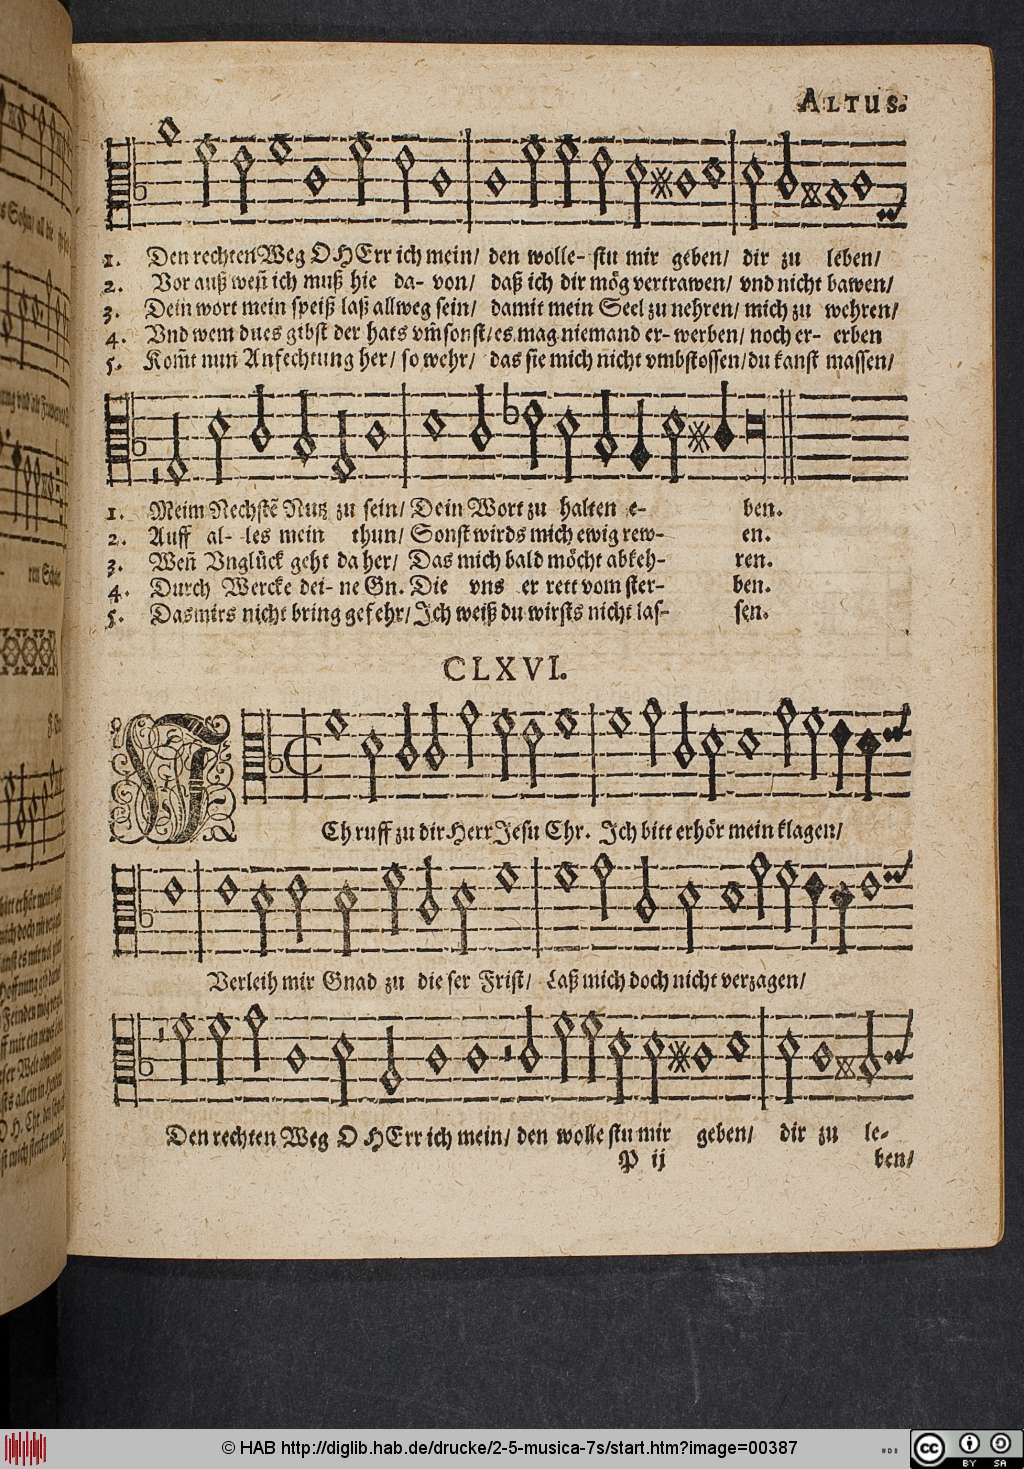 ALTUS.
1. Den rechten Weg O HErr ich mein/ den wolle- stu mir geben/ dir zu leben/
2. Vor auß weñ ich muß hie da- von/ daß ich dir mög vertrawen/ vnd nicht bawen/
3. Dein wort mein speiß laß allweg sein/ damit mein Seel zu nehren/ mich zu wehren/
4. Vnd wem du es gibst der hats vm̃sonst/ es mag niemand er- werben/ noch er- erben
5. Kom̃t nun Anfechtung her/ so wehr/ das sie mich nicht vmbstossen/ du kanst massen/
1. Meim Nechstẽ Nutz zu sein/ Dein Wort zu halten e- ben.
2. Auff al- les mein thun/ Sonst wirds mich ewig rew- en.
3. Weñ Vnglück geht da her/ Das mich bald möcht abkeh- ren.
4. Durch Wercke dei- ne Gn. Die vns er rett vom ster- ben.
5. Das mirs nicht bring gefehr/ Ich weiß du wirsts nicht las- sen.
CLXVI.
ICh ruff zu dir Herr Jesu Chr. Ich bitt erhör mein klagen/
Verleih mir Gnad zu die ser Frist/ Laß mich doch nicht verzagen/
Den rechten Weg O HErr ich mein/ den wolle stu mir geben/ dir zu le-
P ij ben/
© HAB http://diglib.hab.de/drucke/2-5-musica-7s/start.htm?image=00387
cc BY SA